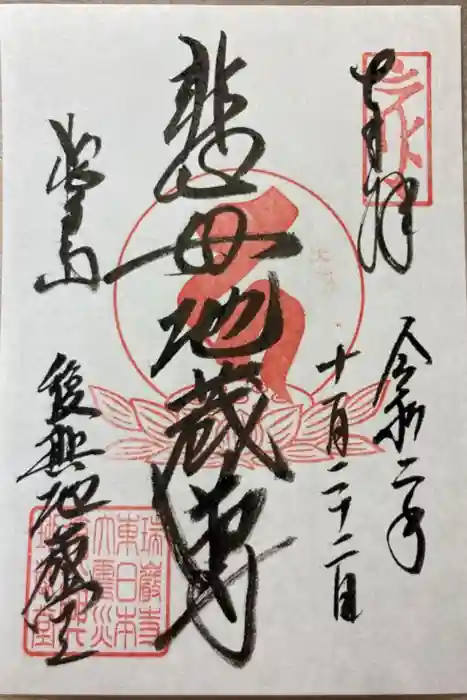 奉拝
令和二年
十一月二十二日
悲母地蔵尊
松島
復興地蔵堂
瑞巌寺
東日本
大震災